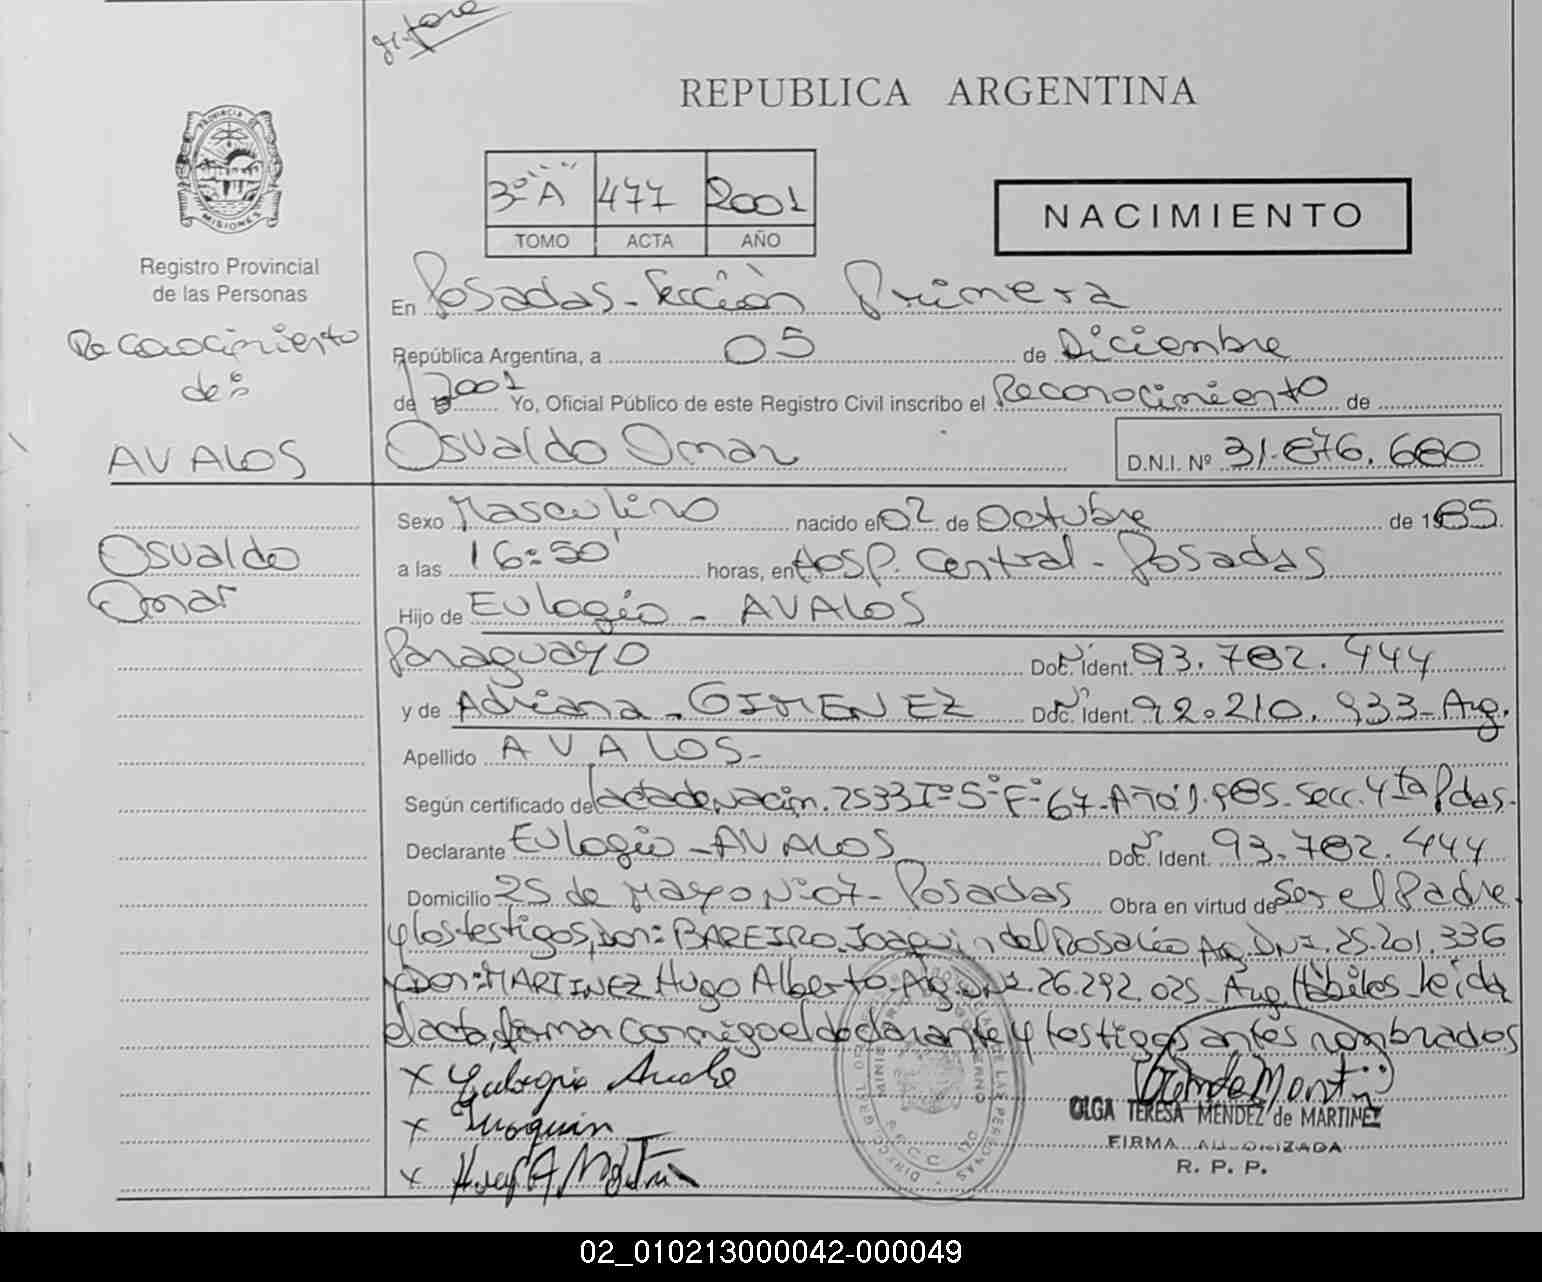 REPUBLICA ARGENTINA
PROVINCIA DE
MISIONES
3º A 477 2001
TOMO ACTA AÑO
NACIMIENTO
Registro Provincial
de las Personas
En Posadas - Sección Primera
Reconocimiento
de:
República Argentina, a 05 de Diciembre
de 2001 Yo, Oficial Público de este Registro Civil inscribo el Reconocimiento de
AVALOS
Osvaldo Omar D.N.I. Nº 31.876.680
Sexo Masculino nacido el 02 de Octubre de 1985.
Osvaldo
Omar
a las 16:50' horas, en Hosp. Central - Posadas
Hijo de Eulogio - AVALOS
Paraguayo Doc. Ident. Nº 93.782.444
y de Adriana - GIMENEZ Doc. Ident. Nº 92.210.933 - Arg.
Apellido AVALOS -
Según certificado de acta de Nacim. 2533 Tº 5º Fº 67 - Año 1.985 - Secc. 4ta Pdas.
Declarante Eulogio - AVALOS Doc. Ident. Nº 93.782.444
Domicilio 25 de Mayo Nº 07 - Posadas Obra en virtud de Ser el Padre
y los testigos, son: BAREIRO, Joaquin del Rosario Arg. DNI. 25.201.336
y Don: MARTINEZ Hugo Alberto - Arg. DNI. 26.292.025 - Arg. Hábiles - leída
el acta, firman conmigo el declarante y testigos antes nombrados
x Eulogio Avalo
x Juoquin
x
OLGA TERESA MENDEZ de MARTINEZ
FIRMA AUTORIZADA
R. P. P.
02_010213000042-000049